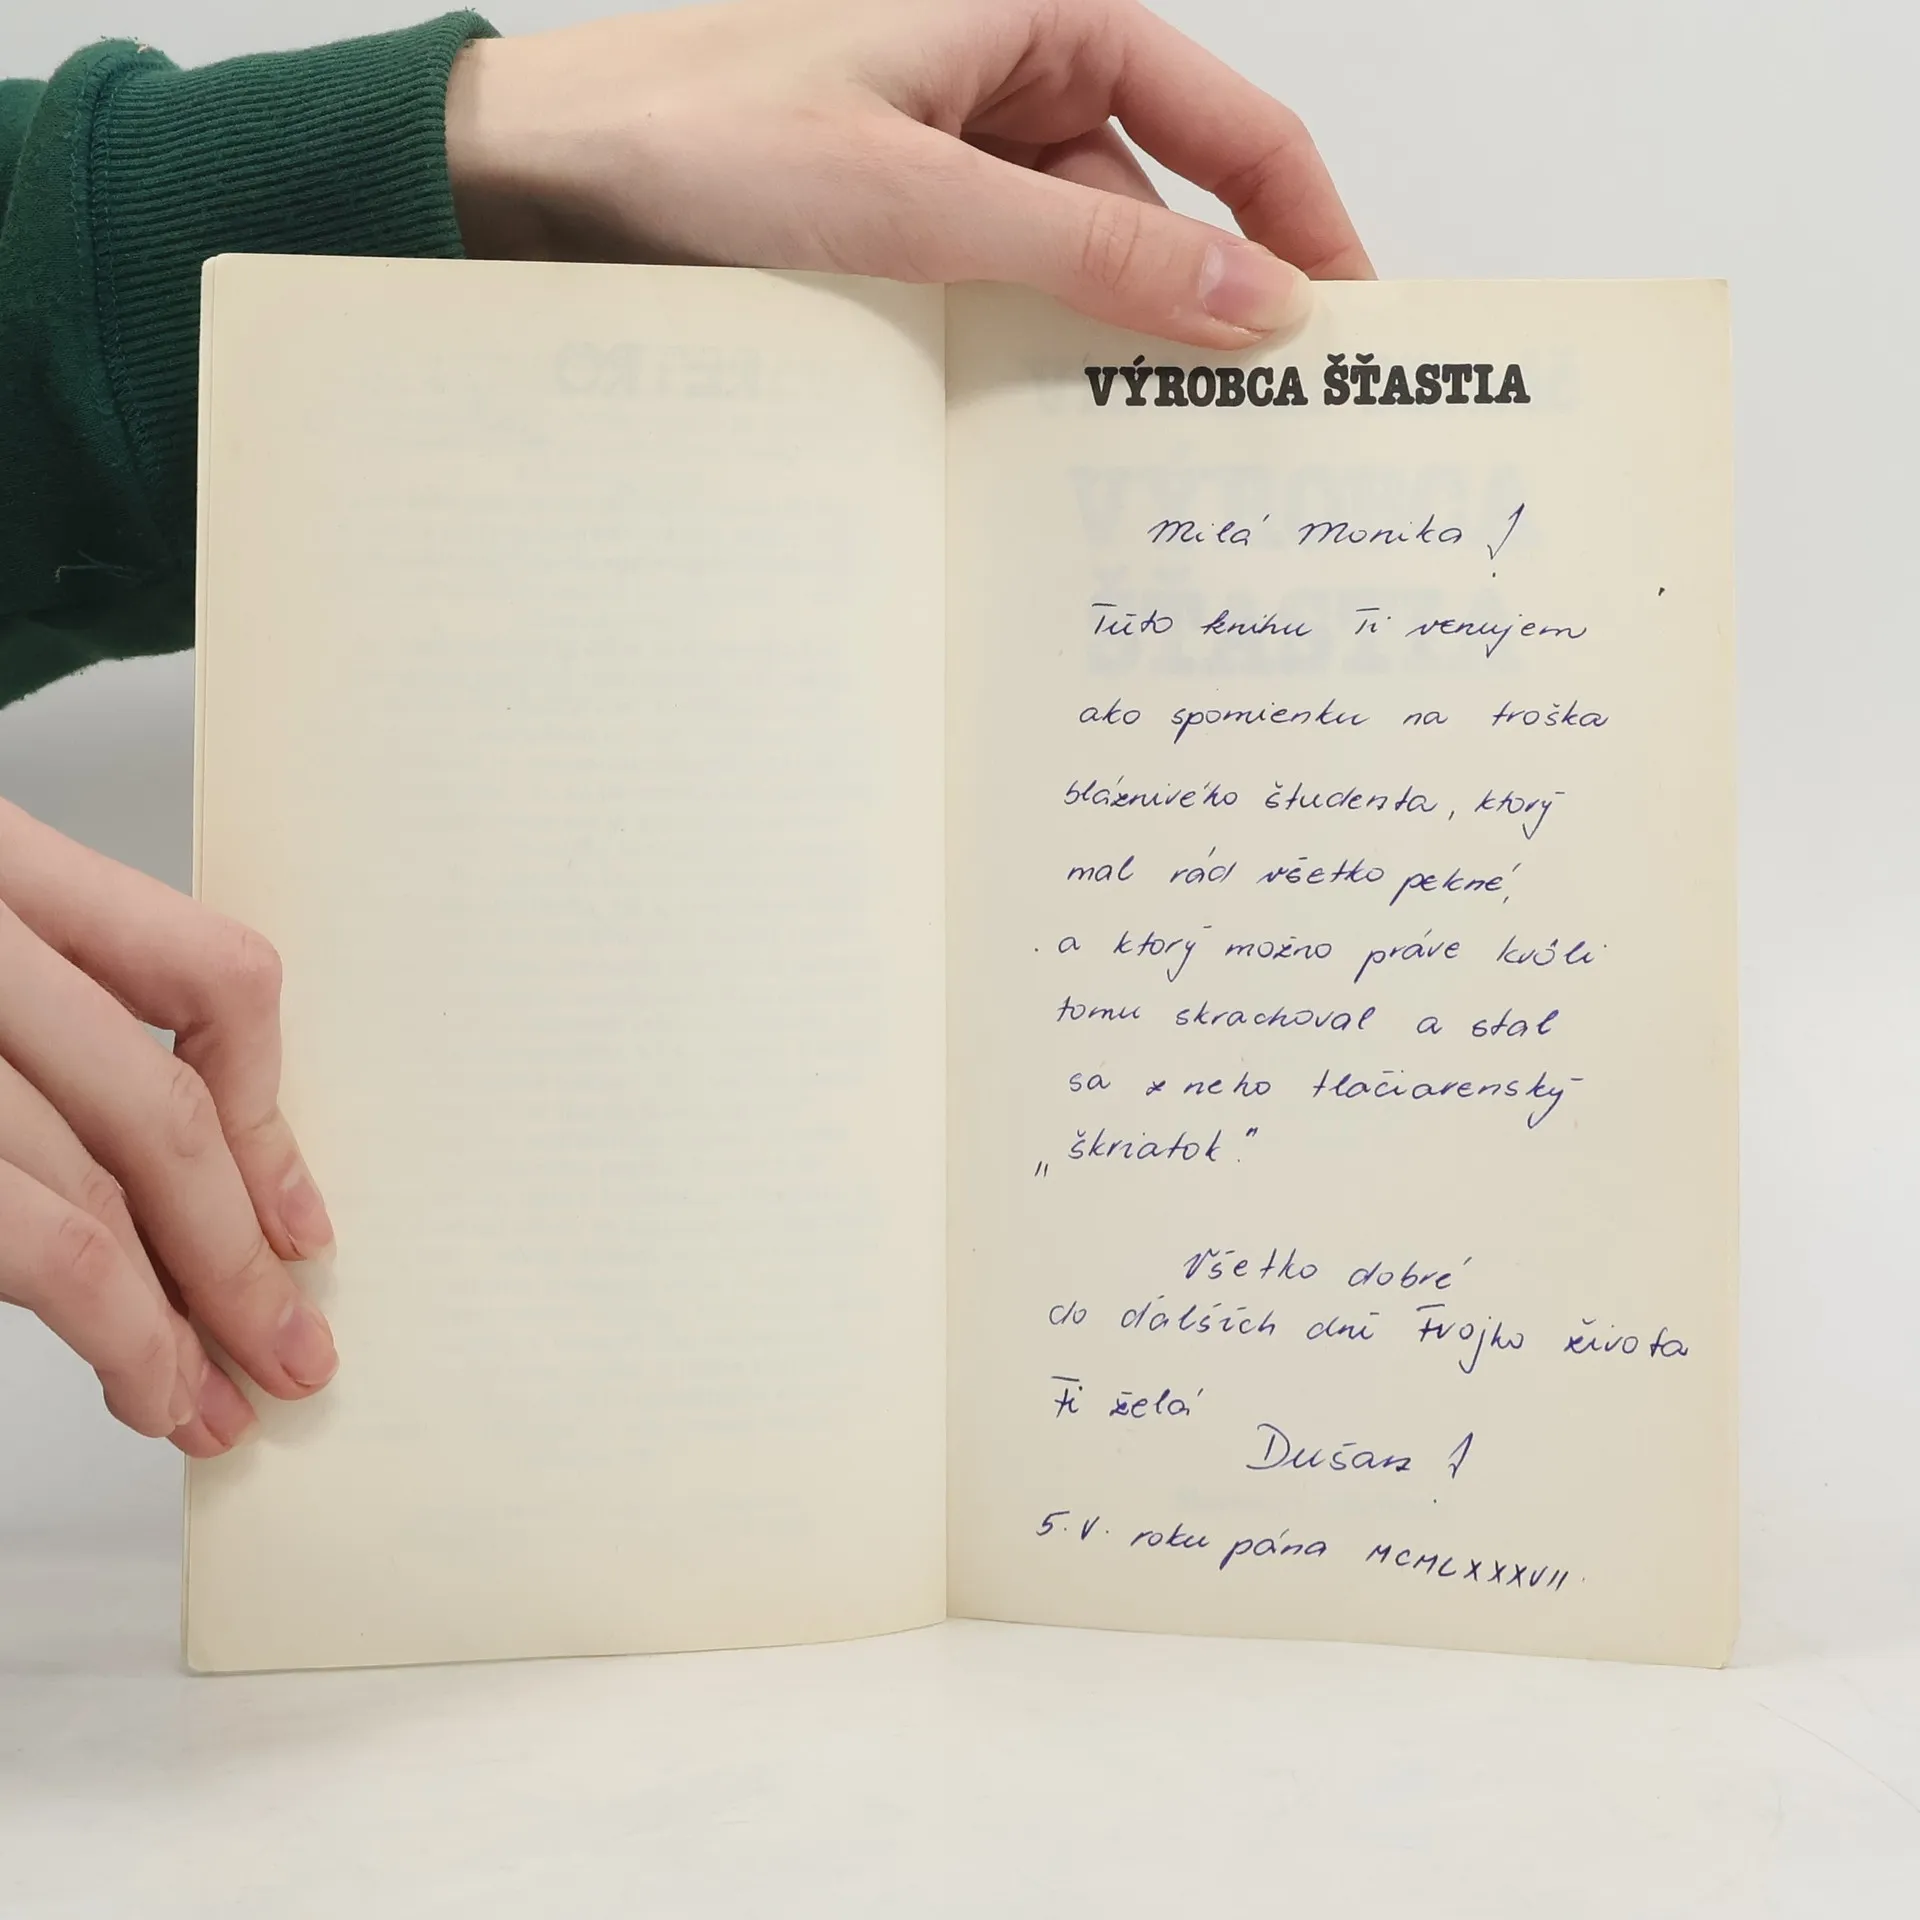 VÝROBCA ŠŤASTIA
Milá Monika!
Túto knihu Ti venujem
ako spomienku na troška
bláznivého študenta, ktorý
mal rád všetko pekné,
a ktorý možno práve kvôli
tomu skrachoval a stal
sa z neho tlačiarenský
„škriatok."
Všetko dobré
do ďalších dní Tvojho života
Ti želá
Dušan!
5. V. roku pána MCMLXXXVII.